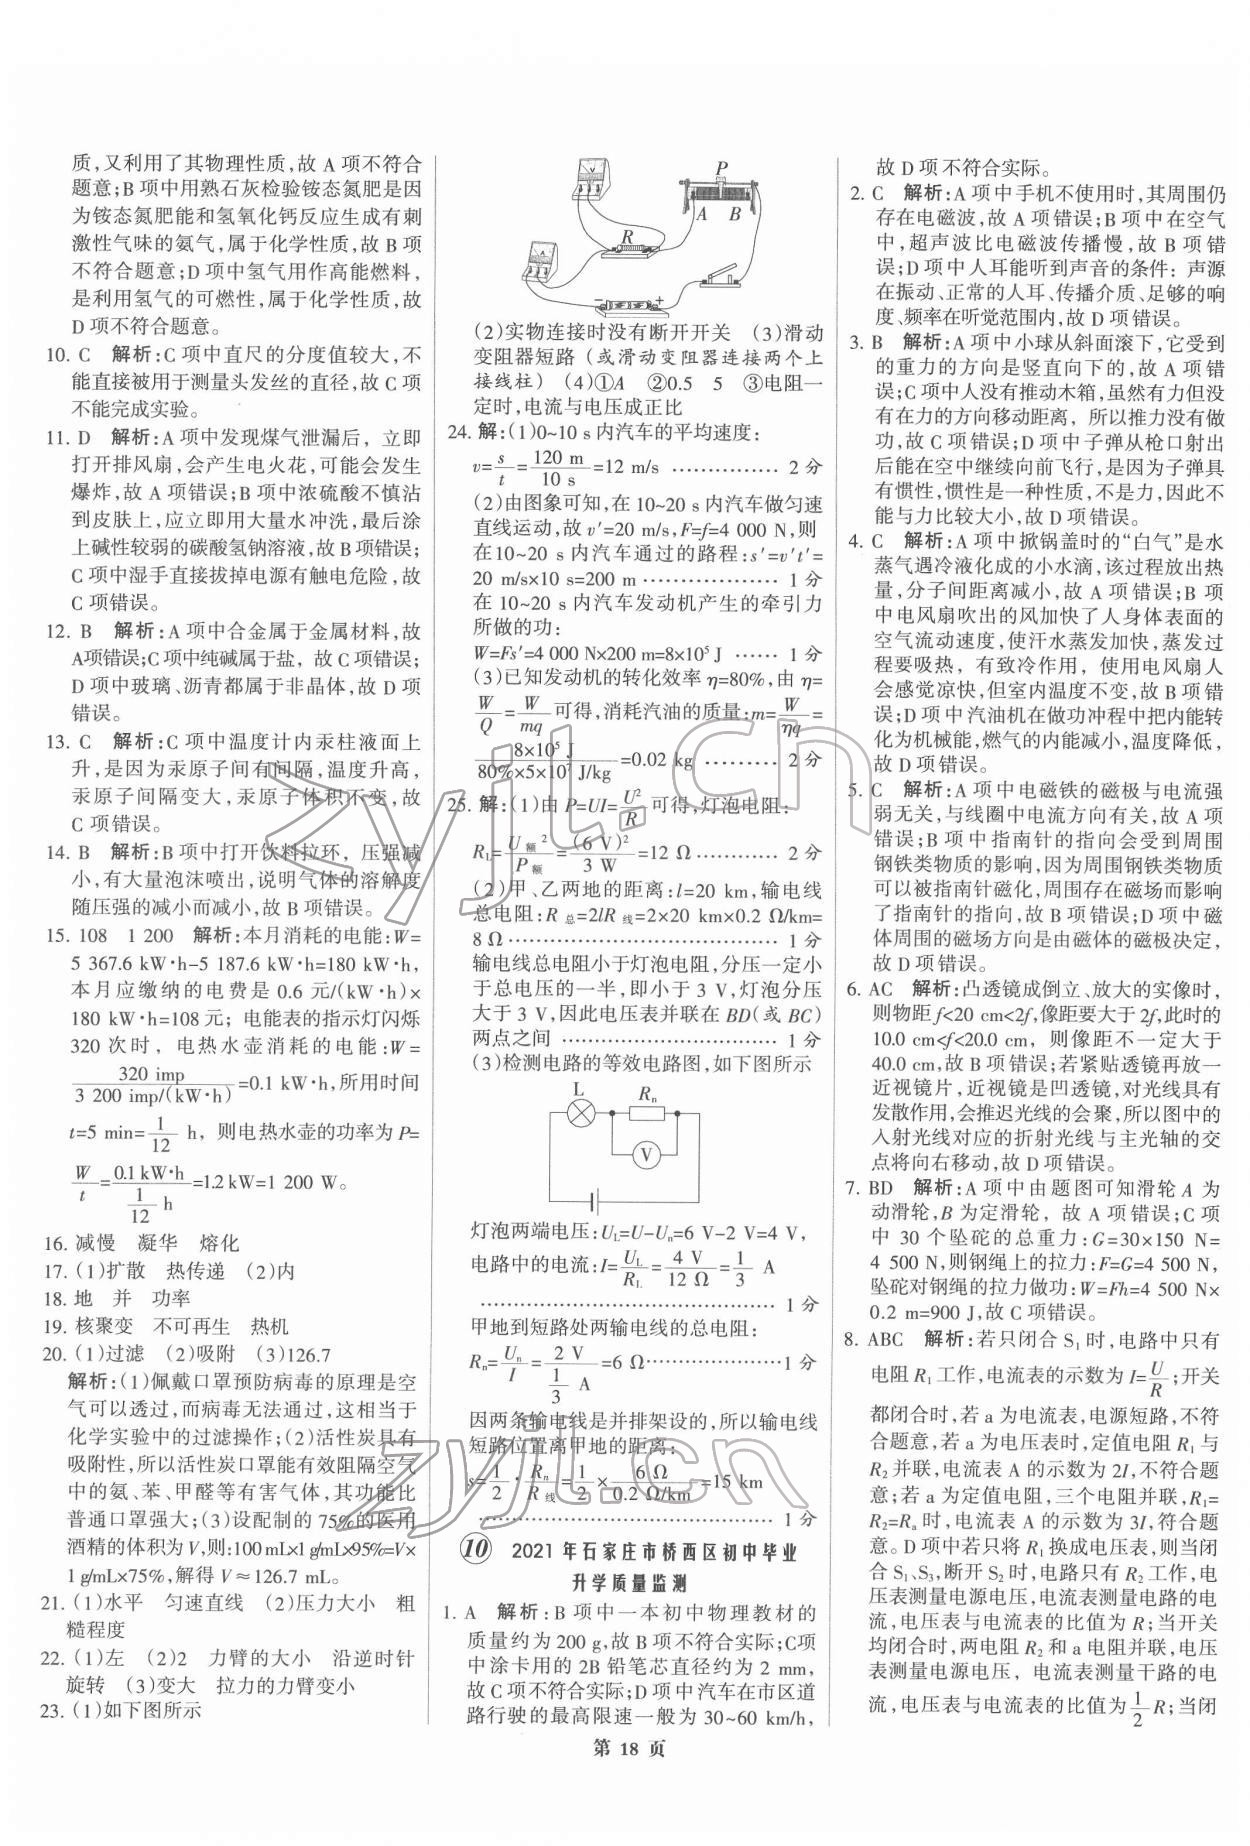 质,又利用了其物理性质,故 A 项不符合
题意;B 项中用熟石灰检验铵态氮肥是因
为铵态氮肥能和氢氧化钙反应生成有刺
激性气味的氨气,属于化学性质,故 B 项
不符合题意;D 项中氢气用作高能燃料,
是利用氢气的可燃性,属于化学性质,故
D 项不符合题意。
10. C 解析:C 项中直尺的分度值较大,不
能直接被用于测量头发丝的直径,故 C 项
不能完成实验。
11. D 解析:A 项中发现煤气泄漏后,立即
打开排风扇,会产生电火花,可能会发生
爆炸,故 A 项错误;B 项中浓硫酸不慎沾
到皮肤上,应立即用大量水冲洗,最后涂
上碱性较弱的碳酸氢钠溶液,故 B 项错误;
C 项中湿手直接拔掉电源有触电危险,故
C 项错误。
12. B 解析:A 项中合金属于金属材料,故
A项错误;C 项中纯碱属于盐,故 C 项错误;
D 项中玻璃、沥青都属于非晶体,故 D 项
错误。
13. C 解析:C 项中温度计内汞柱液面上
升,是因为汞原子间有间隔,温度升高,
汞原子间隔变大,汞原子体积不变,故
C 项错误。
14. B 解析:B 项中打开饮料拉环,压强减
小,有大量泡沫喷出,说明气体的溶解度
随压强的减小而减小,故 B 项错误。
15. 108 1 200 解析:本月消耗的电能:W=
5 367.6 kW·h-5 187.6 kW·h=180 kW·h,
本月应缴纳的电费是 0.6 元/(kW·h)×
180 kW·h=108元;电能表的指示灯闪烁
320 次时,电热水壶消耗的电能:W=
320 imp/3 200 imp/(kW·h)=0.1 kW·h,所用时间
t=5 min=1/12 h,则电热水壶的功率为 P=
W/t=0.1 kW·h/(1/12 h)=1.2 kW=1 200 W。
16. 减慢 凝华 熔化
17. (1)扩散 热传递 (2)内
18. 地 并 功率
19. 核聚变 不可再生 热机
20. (1)过滤 (2)吸附 (3)126.7
解析:(1)佩戴口罩预防病毒的原理是空
气可以透过,而病毒无法通过,这相当于
化学实验中的过滤操作;(2)活性炭具有
吸附性,所以活性炭口罩能有效阻隔空气
中的氨、苯、甲醛等有害气体,其功能比
普通口罩强大;(3)设配制的 75%的医用
酒精的体积为 V,则:100 mL×1 g/mL×95%=V×
1 g/mL×75%,解得 V≈126.7 mL。
21. (1)水平 匀速直线 (2)压力大小 粗
糙程度
22. (1)左 (2)2 力臂的大小 沿逆时针
旋转 (3)变大 拉力的力臂变小
23. (1)如下图所示
V
P
A B
R
A
- +
(2)实物连接时没有断开开关 (3)滑动
变阻器短路(或滑动变阻器连接两个上
接线柱) (4)①A ②0.5 5 ③电阻一
定时,电流与电压成正比
24. 解:(1)0~10 s内汽车的平均速度:
v=s/t=120 m/10 s=12 m/s …………… 2 分
(2)由图象可知,在 10~20 s内汽车做匀速
直线运动,故 v′=20 m/s,F=f=4 000 N,则
在10~20 s内汽车通过的路程:s′=v′t′=
20 m/s×10 s=200 m ……………… 1 分
在 10~20 s内汽车发动机产生的牵引力
所做的功:
W=Fs′=4 000 N×200 m=8×10⁵ J …… 1 分
(3)已知发动机的转化效率 η=80%,由 η=
W/Q=W/mq可得,消耗汽油的质量:m=W/ηq=
8×10⁵ J/80%×5×10⁷ J/kg=0.02 kg ……… 2 分
25. 解:(1)由 P=UI=U²/R可得,灯泡电阻:
R_L=U额²/P额=(6 V)²/3 W=12 Ω………… 2 分
(2)甲、乙两地的距离:l=20 km,输电线
总电阻:R总=2lR线=2×20 km×0.2 Ω/km=
8 Ω……………………………… 1 分
输电线总电阻小于灯泡电阻,分压一定小
于总电压的一半,即小于 3 V,灯泡分压
大于 3 V,因此电压表并联在 BD(或 BC)
两点之间 ……………………… 1 分
(3)检测电路的等效电路图,如下图所示
L Rn
V
灯泡两端电压:U_L=U-Un=6 V-2 V=4 V,
电路中的电流:I=U_L/R_L=4 V/12 Ω=1/3 A
………………………………… 1 分
甲地到短路处两输电线的总电阻:
Rn=Un/I=2 V/(1/3 A)=6 Ω………………1 分
因两条输电线是并排架设的,所以输电线
短路位置离甲地的距离:
s=1/2·Rn/R线=1/2×6 Ω/0.2 Ω/km=15 km
………………………………… 1 分
10 2021 年石家庄市桥西区初中毕业
升学质量监测
1. A 解析:B 项中一本初中物理教材的
质量约为 200 g,故 B 项不符合实际;C项
中涂卡用的 2B 铅笔芯直径约为 2 mm,
故 C 项不符合实际;D 项中汽车在市区道
路行驶的最高限速一般为 30~60 km/h,
故 D 项不符合实际。
2. C 解析:A 项中手机不使用时,其周围仍
存在电磁波,故 A 项错误;B 项中在空气
中,超声波比电磁波传播慢,故 B 项错
误;D 项中人耳能听到声音的条件:声源
在振动、正常的人耳、传播介质、足够的响
度、频率在听觉范围内,故 D 项错误。
3. B 解析:A 项中小球从斜面滚下,它受到
的重力的方向是竖直向下的,故 A 项错
误;C 项中人没有推动木箱,虽然有力但没
有在力的方向移动距离,所以推力没有做
功,故 C 项错误;D 项中子弹从枪口射出
后能在空中继续向前飞行,是因为子弹具
有惯性,惯性是一种性质,不是力,因此不
能与力比较大小,故 D 项错误。
4. C 解析:A 项中掀锅盖时的“白气”是水
蒸气遇冷液化成的小水滴,该过程放出热
量,分子间距离减小,故 A 项错误;B 项
中电风扇吹出的风加快了人身体表面的
空气流动速度,使汗水蒸发加快,蒸发过
程要吸热,有致冷作用,使用电风扇人
会感觉凉快,但室内温度不变,故 B 项错
误;D 项中汽油机在做功冲程中把内能转
化为机械能,燃气的内能减小,温度降低,
故 D 项错误。
5. C 解析:A 项中电磁铁的磁极与电流强
弱无关,与线圈中电流方向有关,故 A 项
错误;B 项中指南针的指向会受到周围
钢铁类物质的影响,因为周围钢铁类物质
可以被指南针磁化,周围存在磁场而影响
了指南针的指向,故 B 项错误;D 项中磁
体周围的磁场方向是由磁体的磁极决定,
故 D 项错误。
6. AC 解析:凸透镜成倒立、放大的实像时,
则物距 f<20 cm<2f,像距要大于 2f,此时的
10.0 cm<f<20.0 cm,则像距不一定大于
40.0 cm,故 B 项错误;若紧贴透镜再放一
近视镜片,近视镜是凹透镜,对光线具有
发散作用,会推迟光线的会聚,所以图中的
入射光线对应的折射光线与主光轴的交
点将向右移动,故 D 项错误。
7. BD 解析:A 项中由题图可知滑轮 A 为
动滑轮,B 为定滑轮,故 A 项错误;C 项
中 30 个坠砣的总重力:G=30×150 N=
4 500 N,则钢绳上的拉力:F=G=4 500 N,
坠砣对钢绳的拉力做功:W=Fh=4 500 N×
0.2 m=900 J,故 C 项错误。
8. ABC 解析:若只闭合 S₁ 时,电路中只有
电阻 R₁ 工作,电流表的示数为 I=U/R;开关
都闭合时,若 a 为电流表,电源短路,不符
合题意;若 a 为电压表时,定值电阻 R₁ 与
R₂ 并联,电流表 A 的示数为 2I,不符合题
意;若 a 为定值电阻,三个电阻并联,R₁=
R₂=Rₐ 时,电流表 A 的示数为 3I,符合题
意。D 项中若只将 R₁ 换成电压表,闭合
S₁、S₃,断开 S₂ 时,电路只有 R₂ 工作,电
压表测量电源电压,电流表测量电路的电
流,电压表与电流表的比值为 R;当开关
均闭合时,两电阻 R₂ 和 a 电阻并联,电压
表测量电源电压,电流表测量干路的电
流,电压表与电流表的比值为1/2 R;当闭
第 18 页
zyjl.cn
zyjl.cn